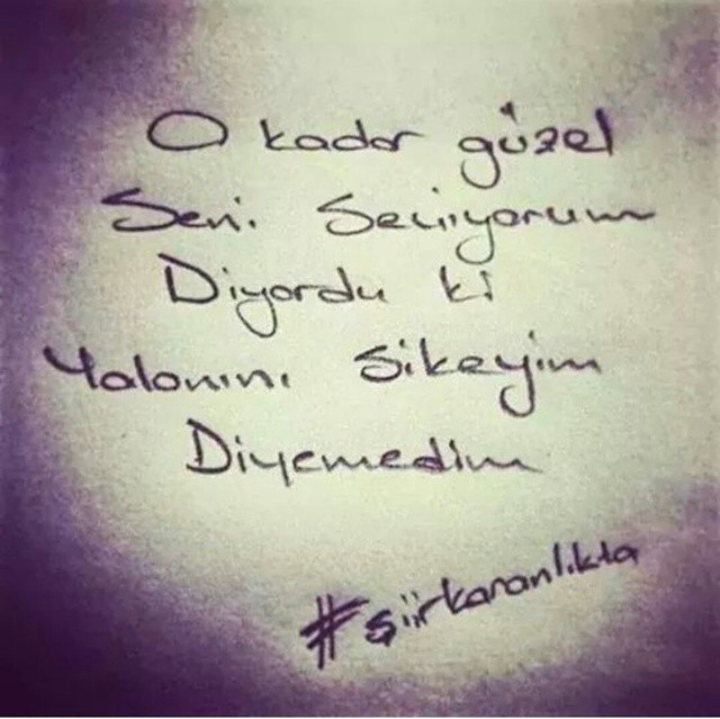 O kadar güzel
Seni Seviyorum
Diyordu ki
Yalanını Sikeyim
Diyemedim
#şiirkaranlıkta